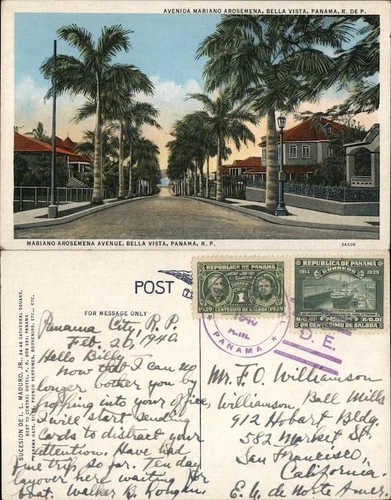 AVENIDA MARIANO AROSEMENA, BELLA VISTA, PANAMA, R. DE P.
MARIANO AROSEMENA AVENUE, BELLA VISTA, PANAMA, R. P.
FOR MESSAGE ONLY
POST
SUCESION DE I. L. MADURO, JR.,
REPUBLICA DE PANAMA
1
1939
1939
REPUBLICA DE PANAMA
1914
CORREOS
1939
UN CENTESIMO DE BALBOA
PANAMA
D. E.
Panama City, R. P.
Feb. 20, 1940.
Hello Billy,
Now that I can no
longer bother you by
popping into your office,
I will start sending
cards to distract your
attention. Have had
fine trip, so far. Ten day
layover here waiting for
boat. Walker R.
Mr. F. O. Williamson
Williamson Ball Mills
912 Hobart Bldg.
582 Market St.
San Francisco,
California.
E. U. de Norte Amer.